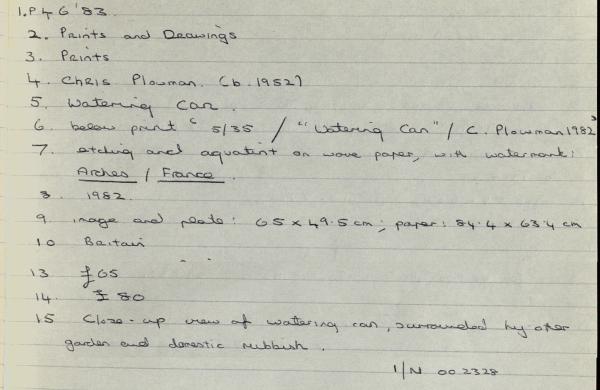 1. P 4 6 '83
2. Prints and Drawings
3. Prints
4. Chris Plowman. (b. 1952)
5. Watering Can.
6. below print " 5/35 / "Watering Can" / C. Plowman 1982"
7. etching and aquatint on wove paper, with watermark:
Arches / France.
8. 1982.
9. image and plate: 65 x 49.5 cm; paper: 84.4 x 63.4 cm
10 Britain
13 £65
14. £80
15 Close-up view of watering can, surrounded by other
garden and domestic rubbish.
1/N 002328